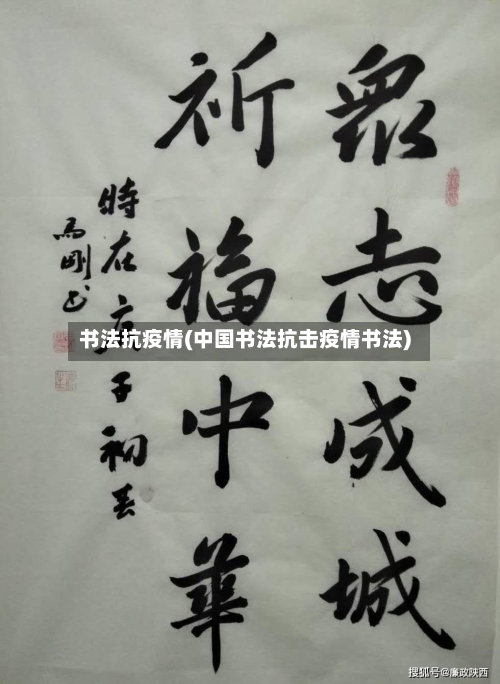 眾志成城
祈福中華
時在庚子初春
馬剛书
书法抗疫情(中国书法抗击疫情书法)
搜狐号@廉政陕西